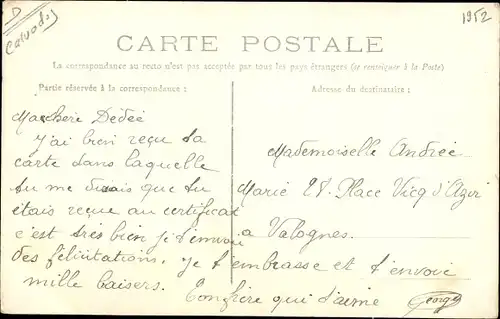 D
Calvados
1952
CARTE POSTALE
La correspondance au recto n'est pas acceptée par tous les pays étrangers (se renseigner à la Poste)
Partie réservée à la correspondance :
Adresse du destinataire :
Ma chère Dédée
j'ai bien reçu ta
carte dans laquelle
tu me disais que tu
étais reçue au certificat
c'est très bien je t'envoi
des félicitations. je t'embrasse et t'envoie
mille baisers. Ton frère qui t'aime Georges
Mademoiselle Andrée
Marie 27. Place Vicq d'Azir
a Valognes.